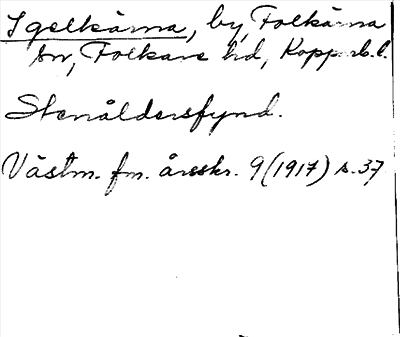 Igelkärna, by, Folkärna
sn, Folkare hd, Kopparb. l.
Stenåldersfynd.
Västm. fm. årsskr. 9 (1917) s. 37